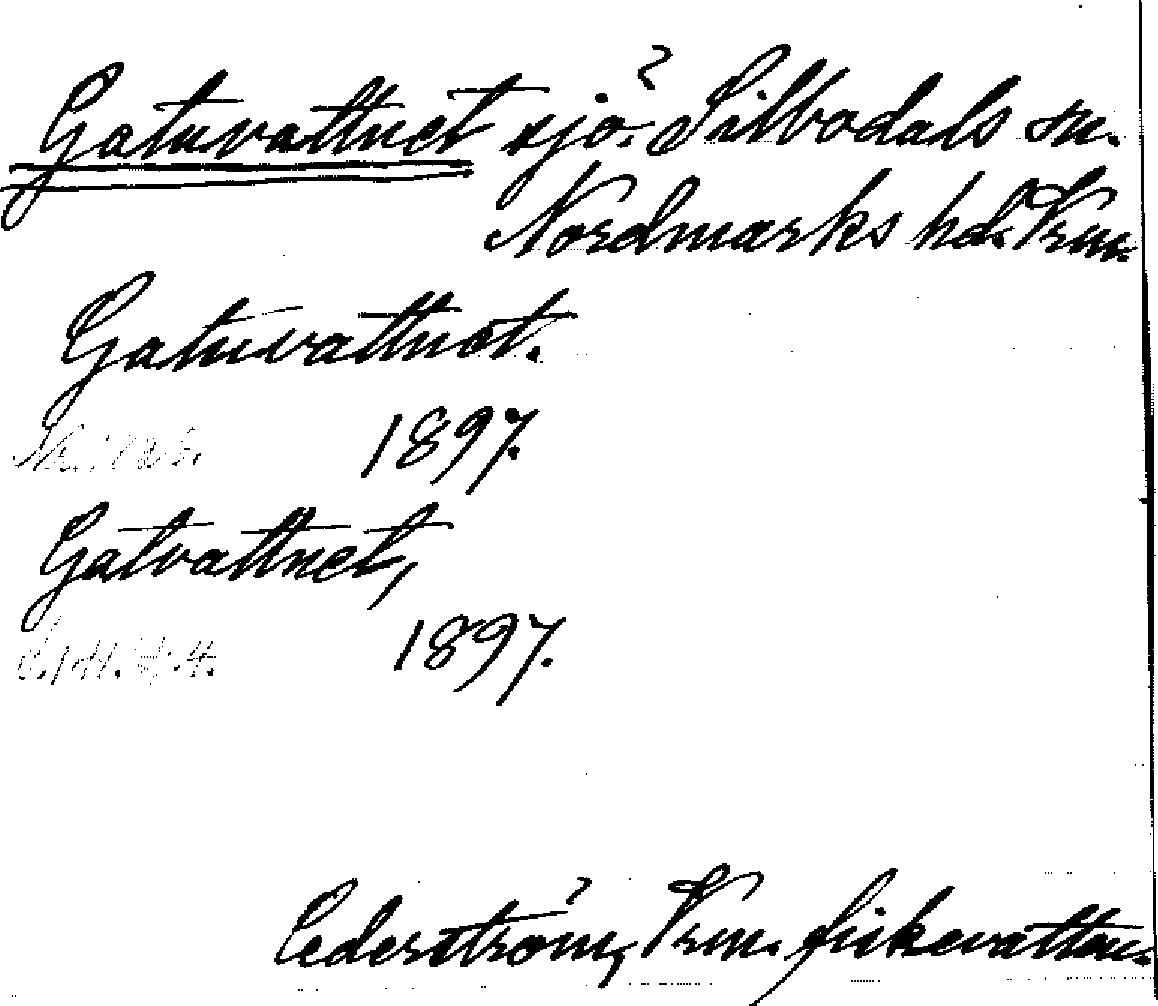 Gatuvattnet sjö. Silbodals sn.
Nordmarks hd. Vrm.
Gatuvattnet.
1897.
Gatvattnet,
1897.
Cederström, Vrm. fiskevatten.